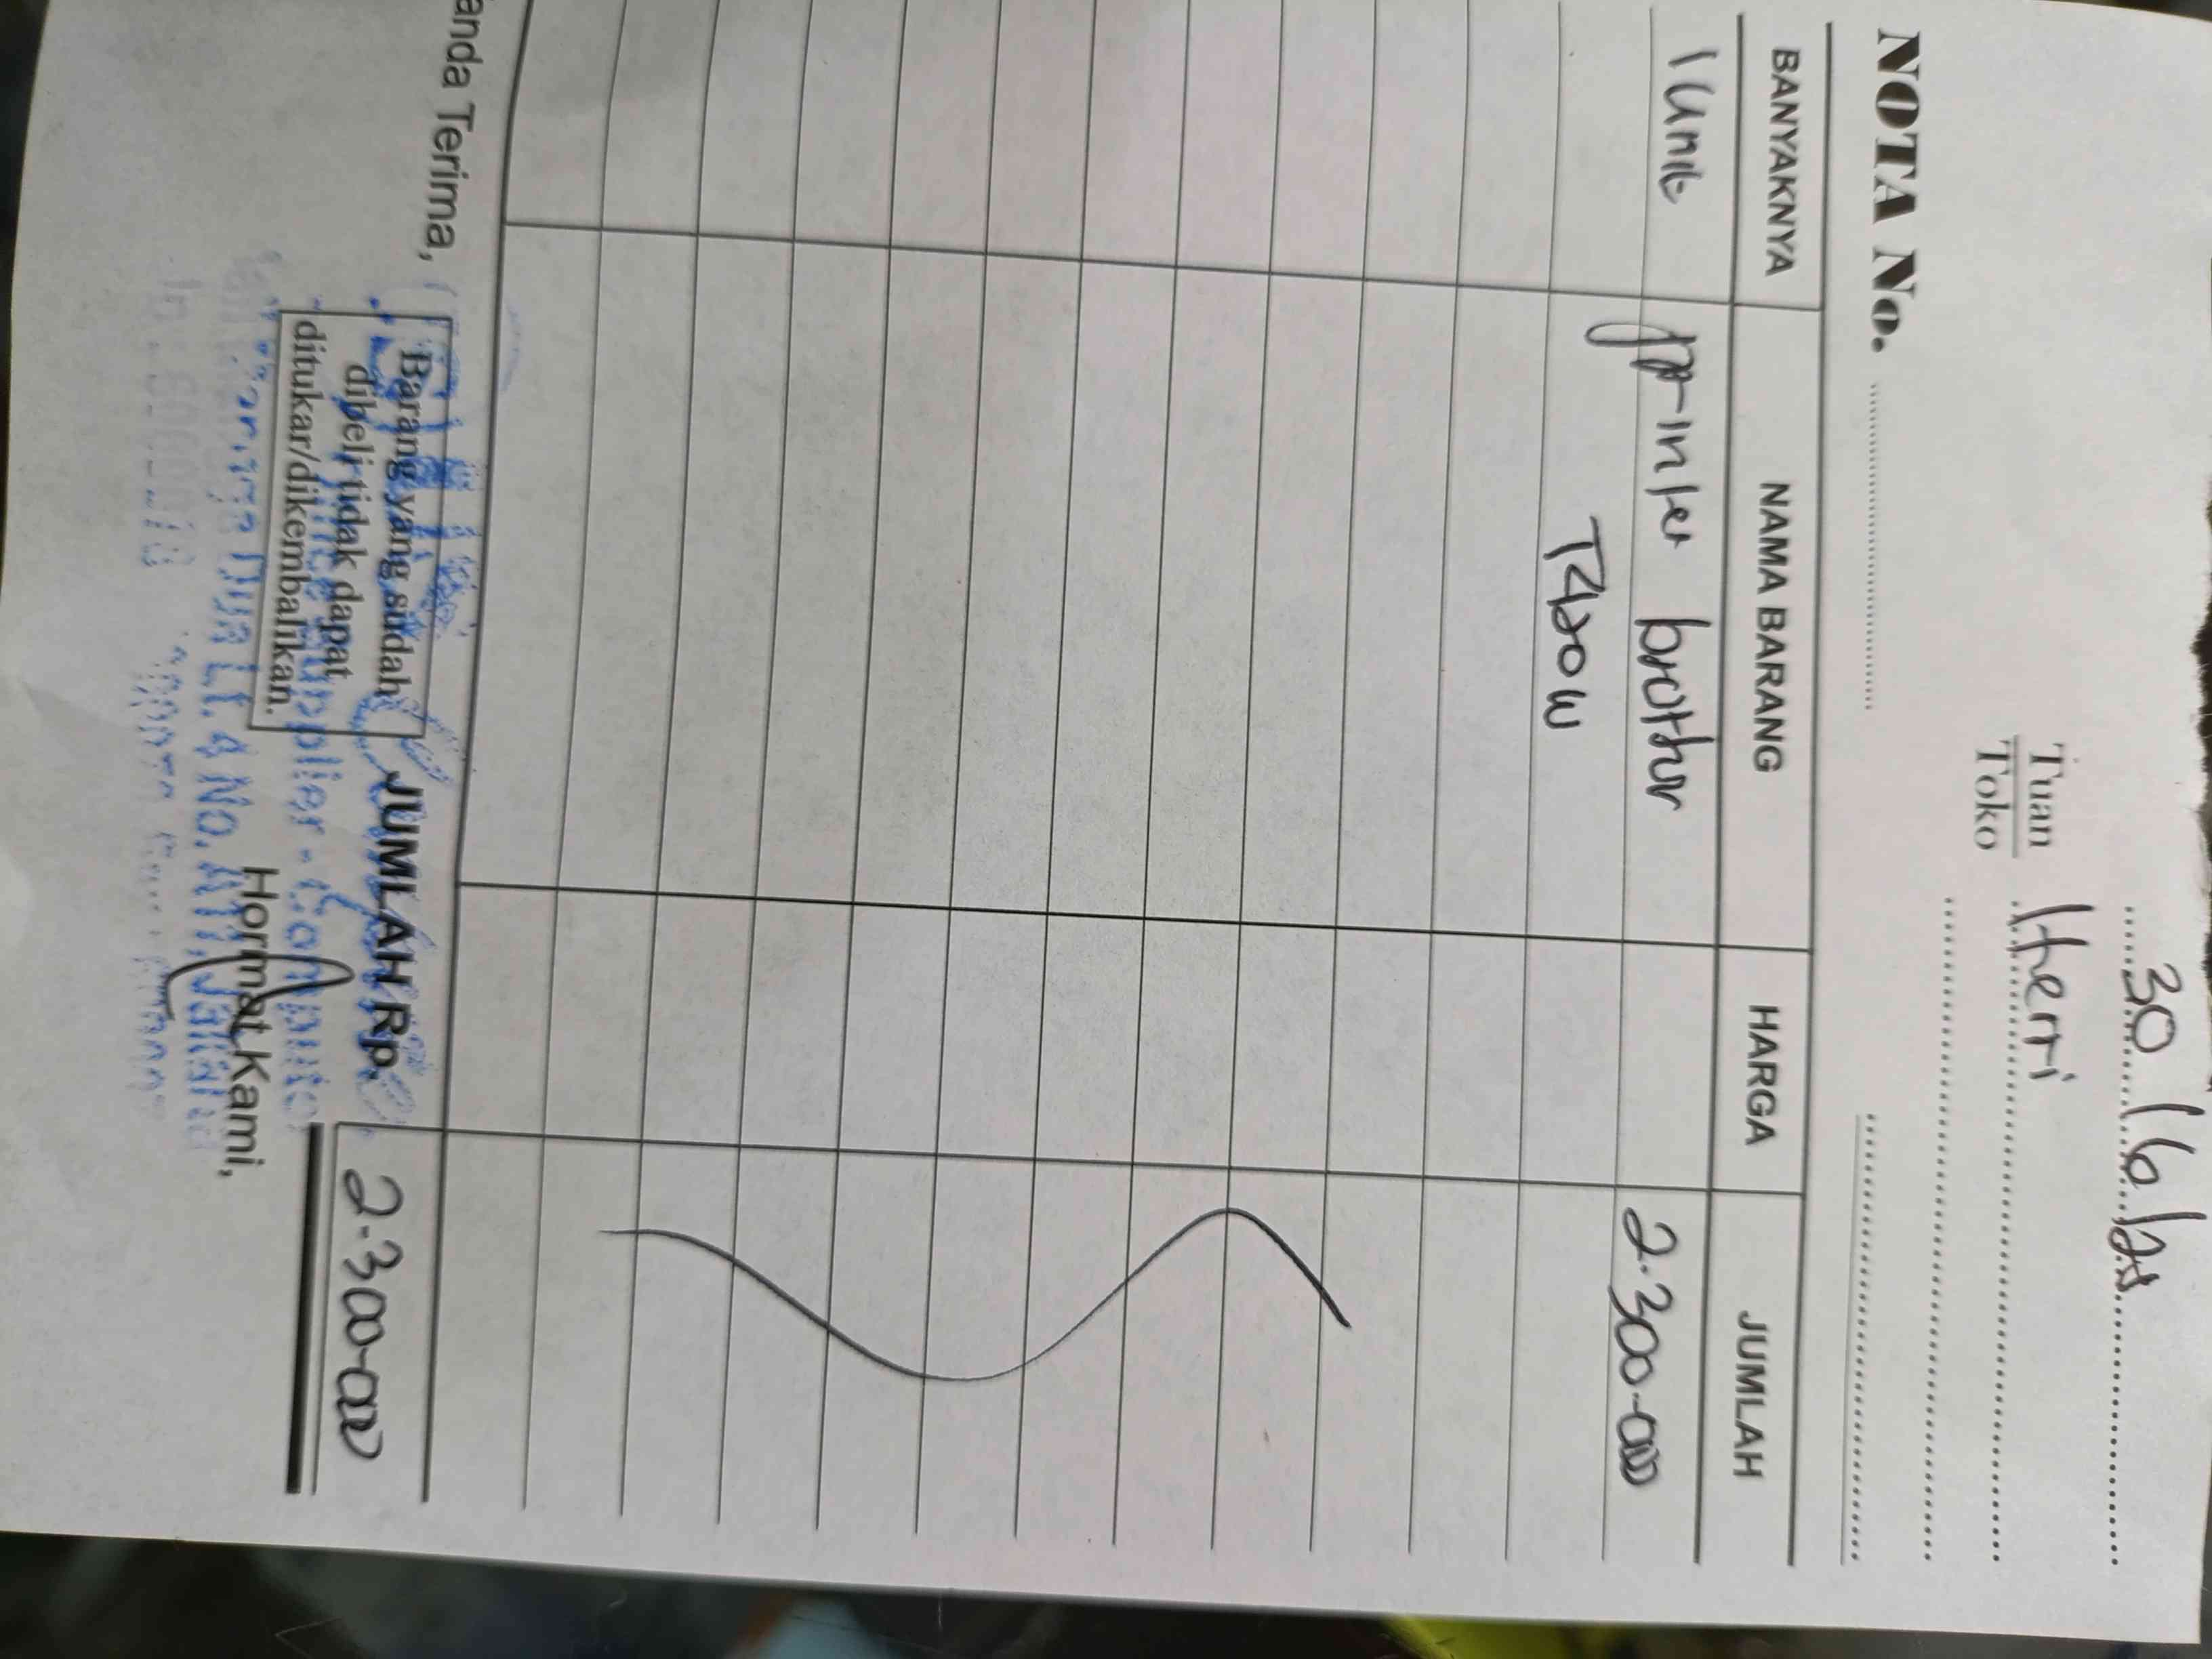 30/6/25
Tuan Heri
Toko
NOTA No.
BANYAKNYA NAMA BARANG HARGA JUMLAH
1 Unit printer brother 2.300.000
T420W
JUMLAH Rp. 2.300.000
anda Terima,
Barang yang sudah
dibeli tidak dapat
ditukar/dikembalikan.
Hormat Kami,
Supplier - Computer
Dua Lt. 4 No.